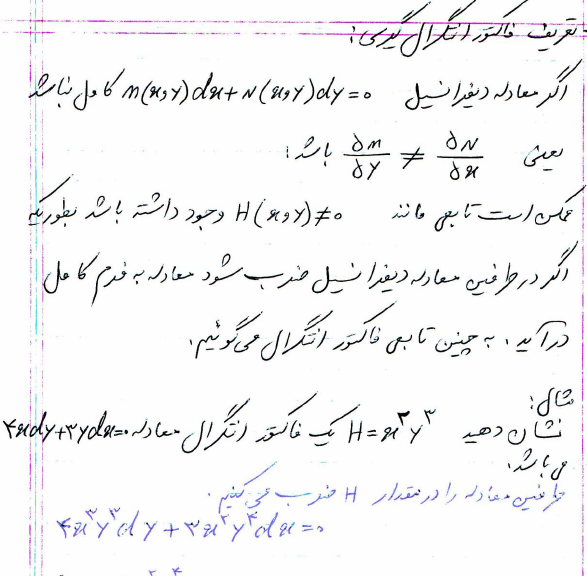 تعریف فاکتور انتگرال گیری:
اگر معادله دیفرانسیل M(x,y)dx+N(x,y)dy=0 کامل نباشد
یعنی ∂M/∂y ≠ ∂N/∂x باشد:
ممکن است تابعی مانند H(x,y)≠0 وجود داشته باشد بطوریکه
اگر در طرفین معادله دیفرانسیل ضرب شود معادله به فرم کامل
درآید. به چنین تابعی فاکتور انتگرال می‌گوئیم.
مثال:
نشان دهید H=x²y³ یک فاکتور انتگرال معادله ۴xdy+۳ydx=۰
می باشد.
طرفین معادله را در مقدار H ضرب می کنیم.
۴x³y³dy+۳x²y⁴dx=۰